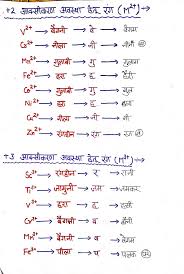 +2 आक्सीकरण अवस्था हेतु रंग (M²⁺) →
V²⁺ → बैंगनी → बै → बेगम
Cr²⁺ → नीला → नी → नीनी
Mn²⁺ → गुलाबी → गु →
Fe²⁺ → हरा → ह →
Co²⁺ → गुलाबी → गु →
Ni²⁺ → हरा → ह →
Cu²⁺ → नीला → नी →
Zn²⁺ → रंगहीन → रंग
+3 आक्सीकरण अवस्था हेतु रंग (M³⁺) →
Sc³⁺ → रंगहीन → र → रानी
Ti³⁺ → जामुनी → जम →
V³⁺ → हरा → ह →
Cr³⁺ → बैंगनी → ब →
Mn³⁺ → बैंगनी → ब → बेगम
Fe³⁺ → पीला → प →